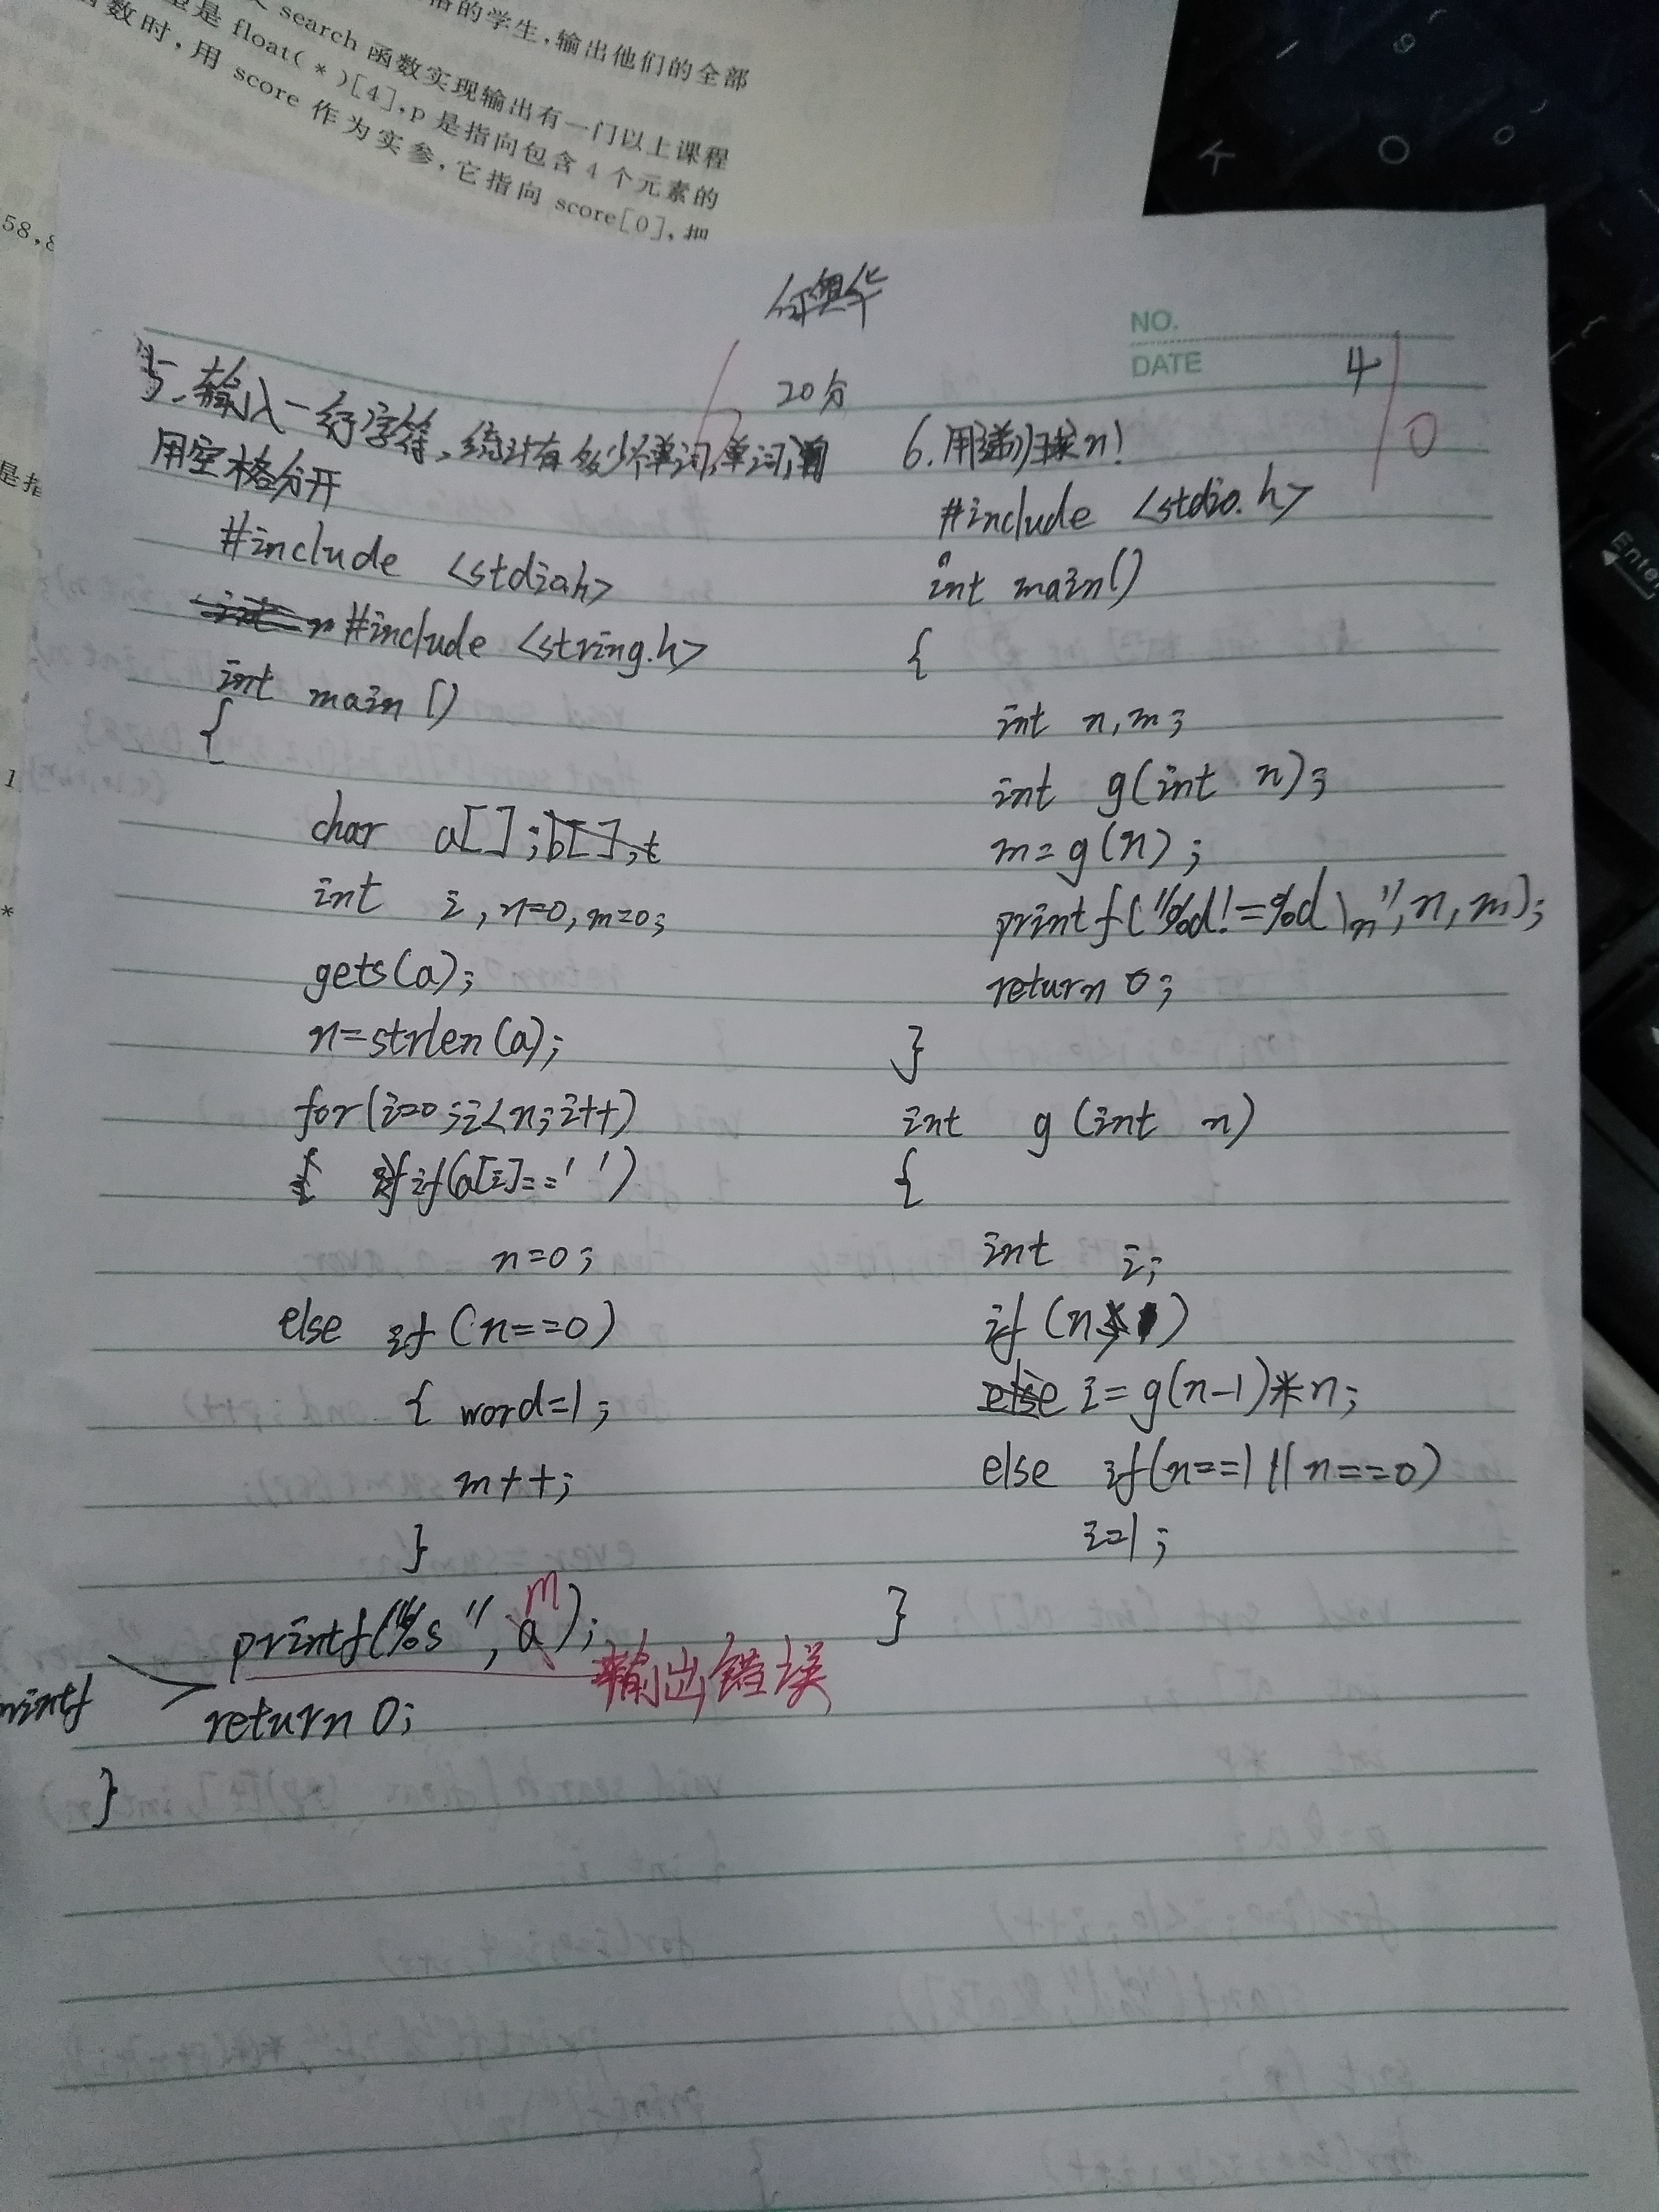 洛的学生,输出他们的全部
search 函数实现输出有一门以上课程
是 float(*)[4],p 是指向包含 4 个元素的
函数时,用 score 作为实参,它指向 score[0],把
58,8
是指
1
*
Enter
NO.
DATE
4
20分
5.输入一行字符,统计有多少个单词,单词间
用空格分开
#include <stdio.h>
#include <string.h>
int main()
{
char a[];b[],t
int i,n=0,m=0;
gets(a);
n=strlen(a);
for(i=0;i<n;i++)
{ if(a[i]==' ')
n=0;
else if(n==0)
{ word=1;
m++;
}
printf("%s",a);
m
输出错误
printf
return 0;
}
0
6.用递归求n!
#include <stdio.h>
int main()
{
int n,m;
int g(int n);
m=g(n);
printf("%d!=%d\n",n,m);
return 0;
}
int g(int n)
{
int i;
if(n
else i=g(n-1)*n;
else if(n==1||n==0)
i=1;
}